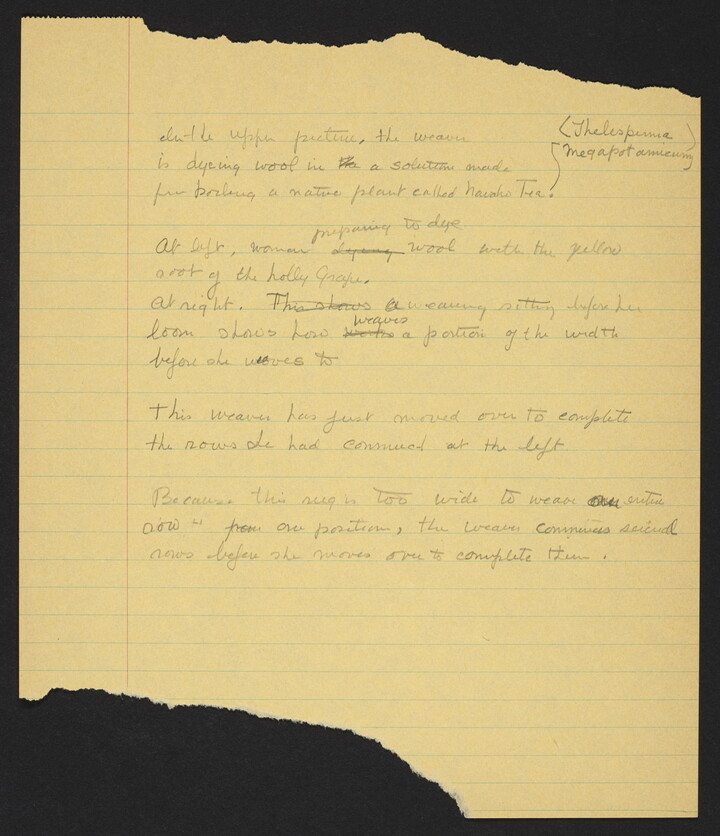 In the upper picture, the weaver
(Thelesperma
megapotamicum)
is dyeing wool in the a solution made
from boiling a native plant called Navaho Tea.
preparing to dye
At left, woman dyeing wool with the yellow
root of the holly grape.
At right. This shows a weaving sitting before her
weaves
loom shows how works a portion of the width
before she moves to
This weaver has just moved over to complete
the rows she had commenced at the left
Because this rug is too wide to weave an entire
row from one position, the weaver commences several
rows before she moves over to complete them.